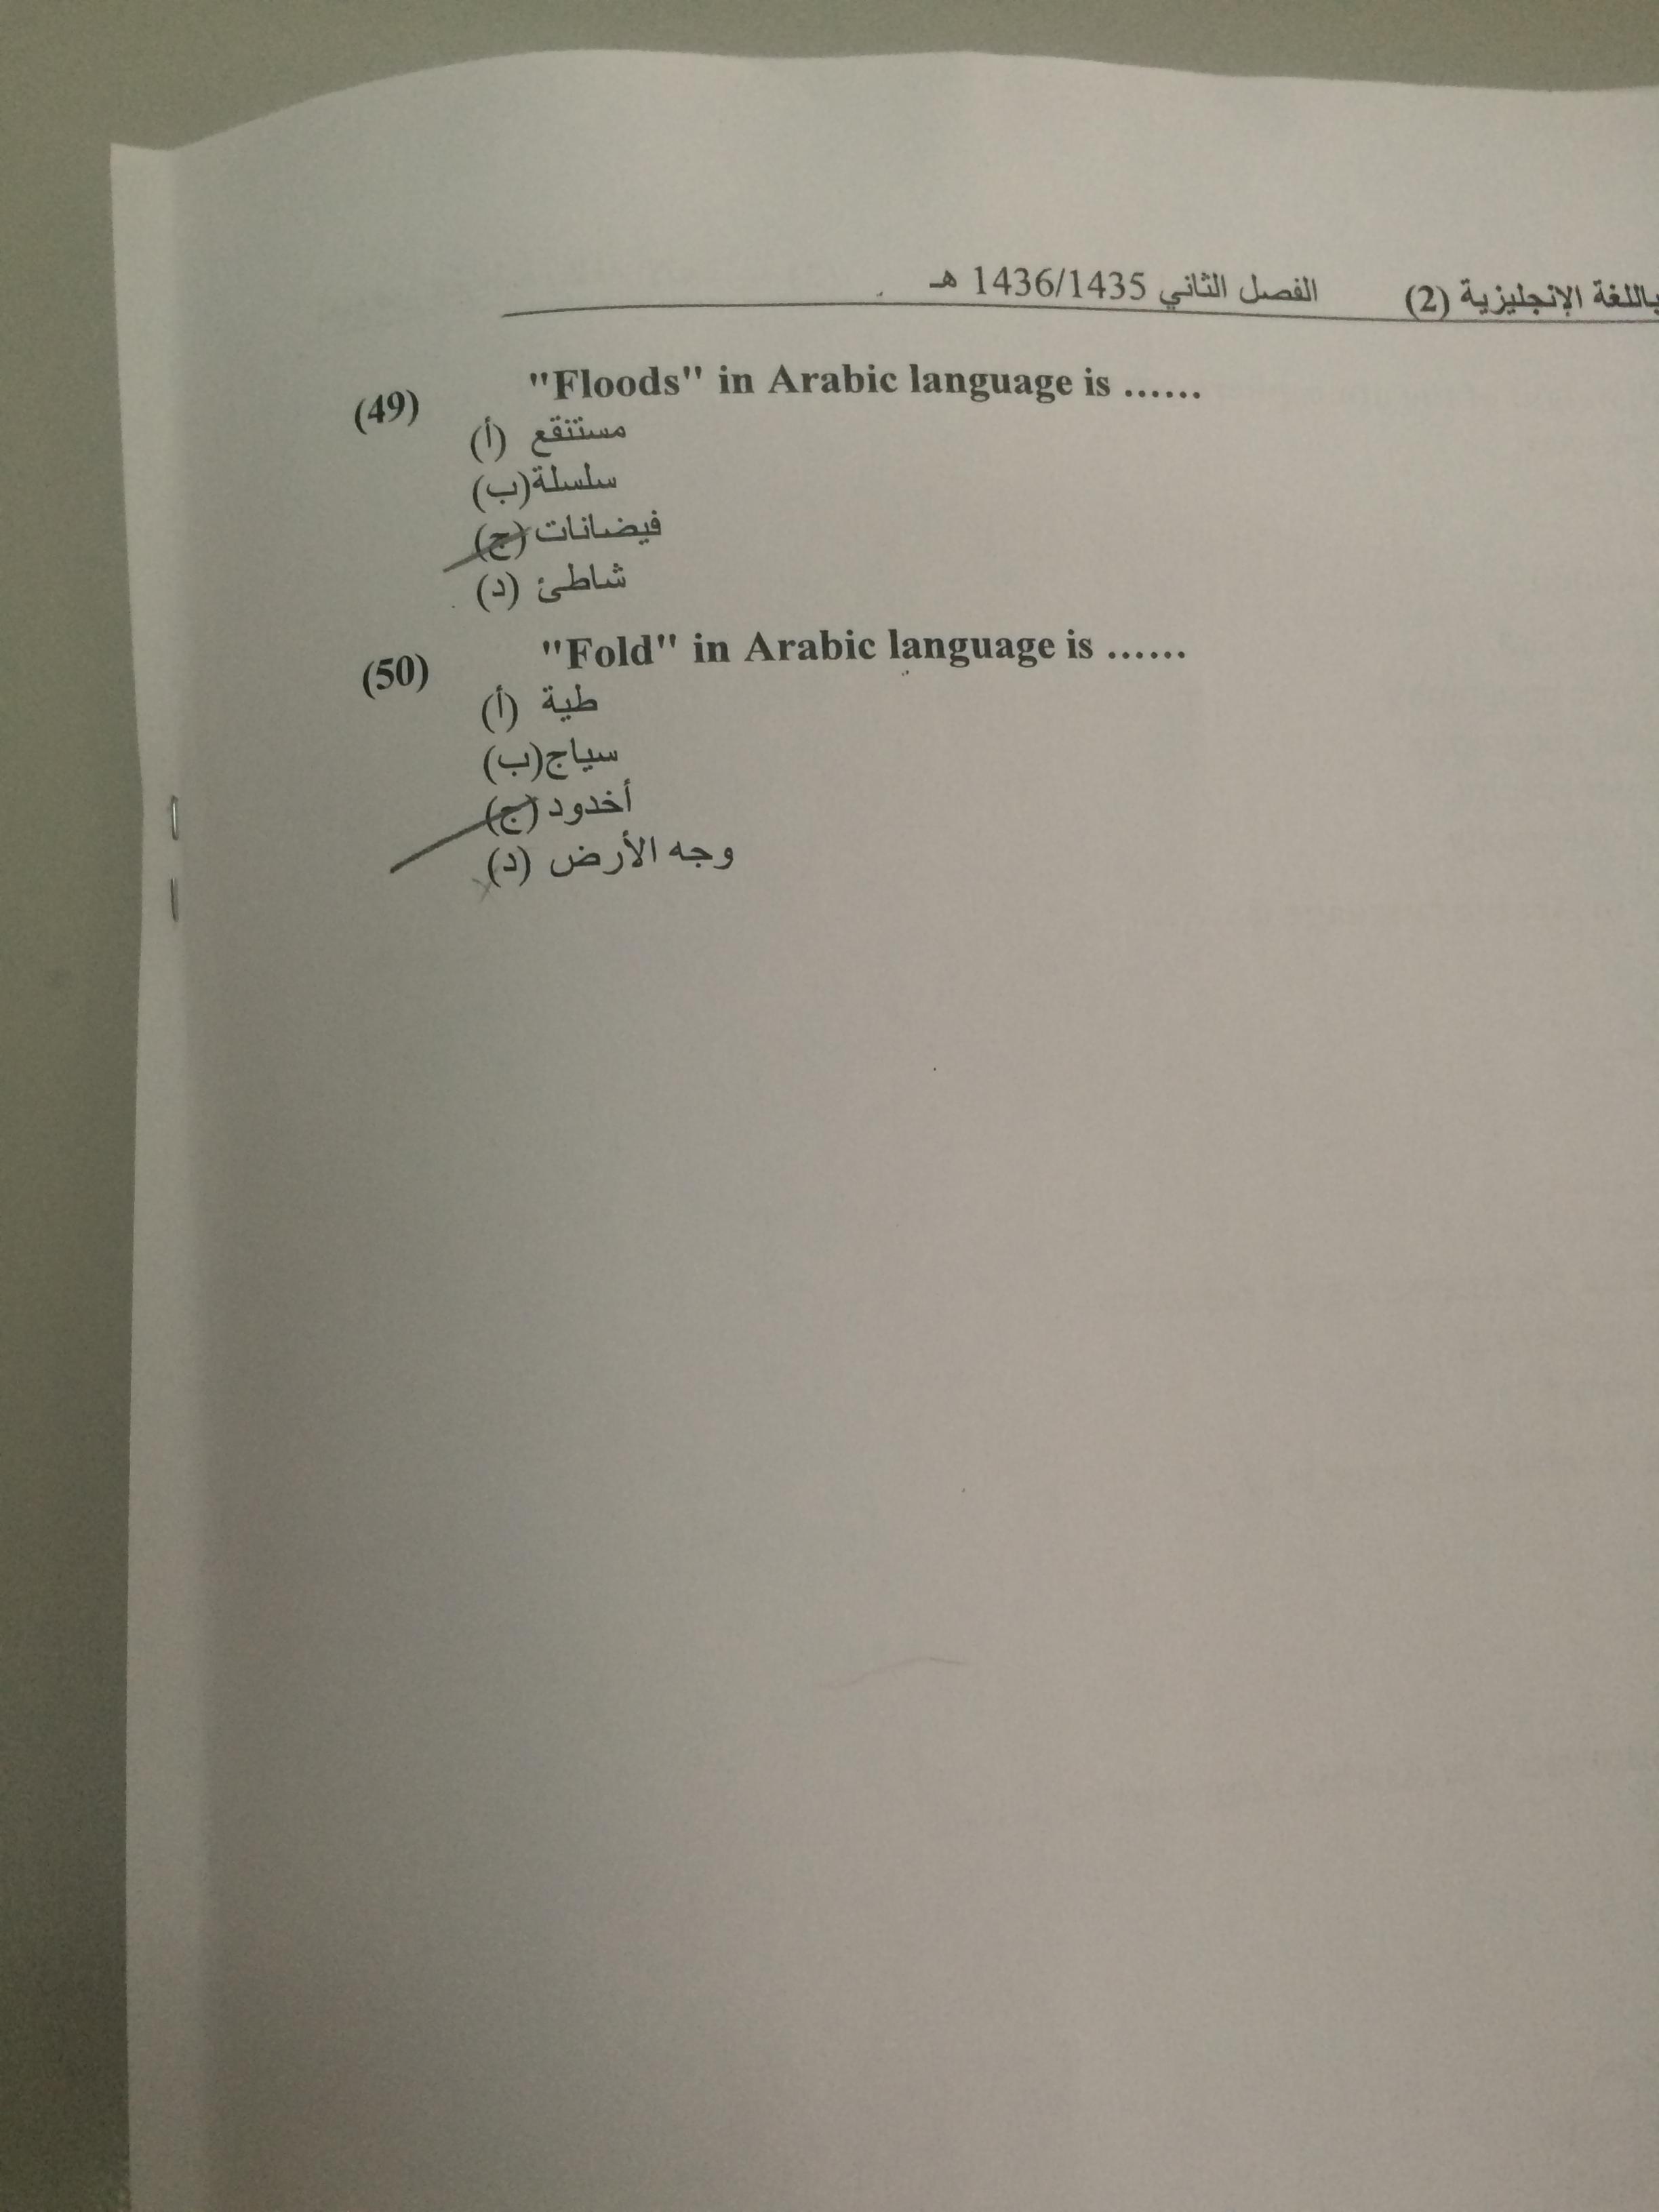 باللغة الإنجليزية (2) الفصل الثاني 1436/1435 هـ
(49) "Floods" in Arabic language is ......
(أ) مستنقع
(ب) سلسلة
(ج) فيضانات
(د) شاطئ
(50) "Fold" in Arabic language is ......
(أ) طية
(ب) سياج
(ج) أخدود
(د) وجه الأرض